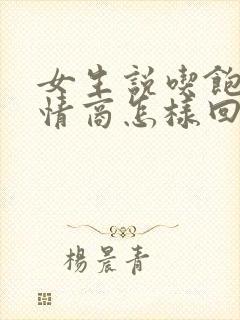 女生説喫飽
情商怎樣回
楊晨青